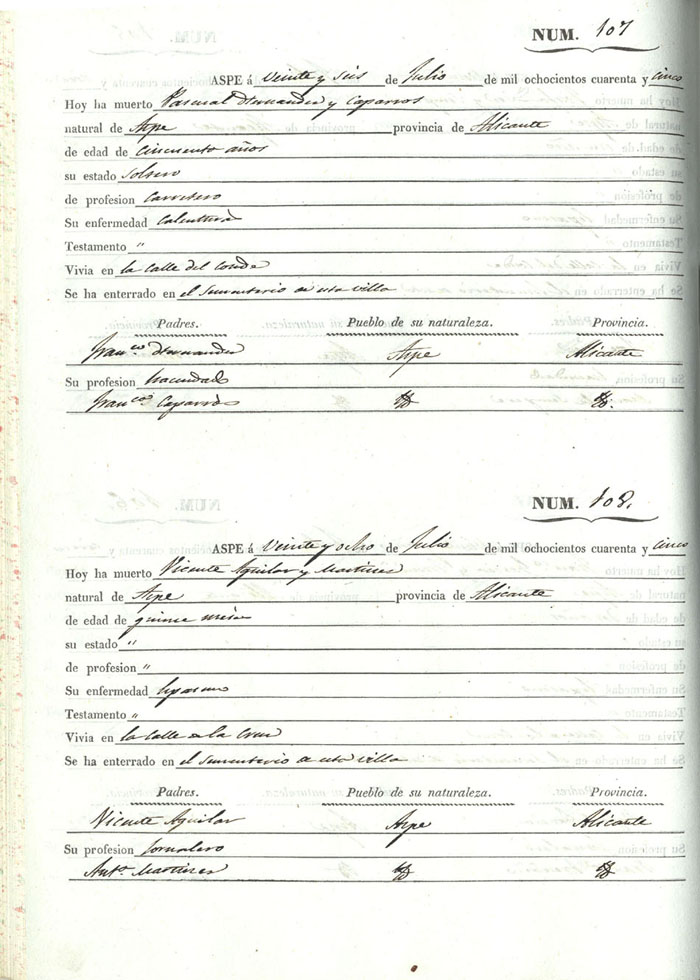 NUM. 107
ASPE á Veinte y seis de Julio de mil ochocientos cuarenta y cinco
Hoy ha muerto Pascual Hernandez y Caparros
natural de Aspe provincia de Alicante
de edad de cincuenta años
su estado soltero
de profesion Carretero
Su enfermedad Calentura
Testamento "
Vivia en la Calle del Conde
Se ha enterrado en el Sementerio de esta villa
Padres. Pueblo de su naturaleza. Provincia.
Franco. Hernandez Aspe Alicante
Su profesion hacendado
Franca. Caparros
NUM. 108.
ASPE á Veinte y ocho de Julio de mil ochocientos cuarenta y cinco
Hoy ha muerto Vicente Aguilar y Martines
natural de Aspe provincia de Alicante
de edad de quince meses
su estado "
de profesion "
Su enfermedad
Testamento "
Vivia en la Calle de la Cruz
Se ha enterrado en el Sementerio de esta villa
Padres. Pueblo de su naturaleza. Provincia.
Vicente Aguilar Aspe Alicante
Su profesion Jornalero
Anta. Martines